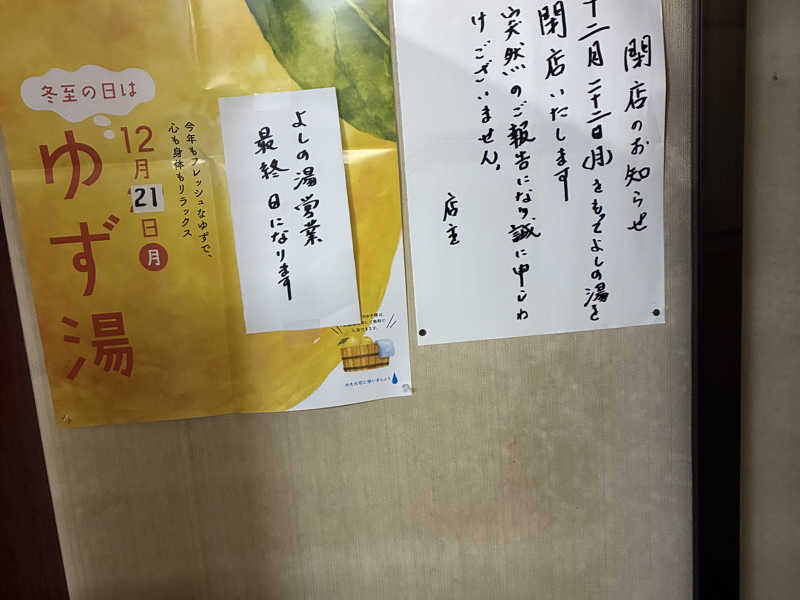 閉店のお知らせ
十二月二十二日(月)をもってよしの湯を
閉店いたします
突然のご報告になり、誠に申しわ
けございません。
店主
よしの湯営業
最終日になります
冬至の日は
12月21日(月)
ゆず湯
今年もフレッシュなゆずで、
心も身体もリラックス